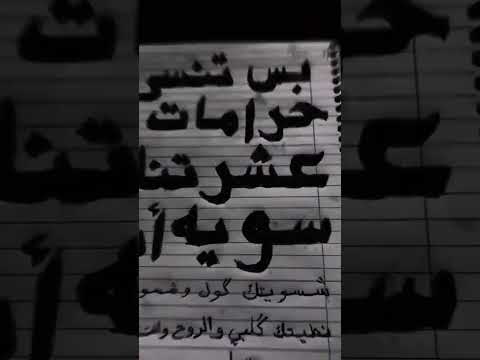 بس تنسى
حرامات
عشرتنا
سويه
شسويتك گول وشمو
نطيتك گلبي والروح وانت